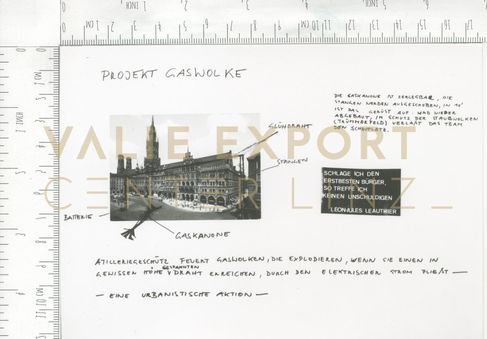 PROJEKT GASWOLKE
DIE GASKANONE IST ZERLEGBAR, DIE
STANGEN WERDEN AUSGESCHOBEN, IN 10'
IST DAS GERÜST AUF UND WIEDER
ABGEBAUT, IM SCHUTZ DER STAUBWOLKEN
(TRÜMMERFELD) VERLÄßT DAS TEAM
DEN SCHUPLATZ.
GLÜHDRAHT
STANGEN
VALIE EXPORT
CENTER LINZ_
SCHLAGE ICH DEN
ERSTBESTEN BÜRGER,
SO TREFFE ICH
KEINEN UNSCHULDIGEN
LEON-JULES LEAUTHIER
BATTERIE
GASKANONE
ATILLERIEGESCHÜTZ FEUERT GASWOLKEN, DIE EXPLODIEREN, WENN SIE EINEN IN
GEWISSEN HÖHE GESPANNTEN DRAHT ERREICHEN, DURCH DEN ELEKTRISCHER STROM FLIEßT —
— EINE URBANISTISCHE AKTION —